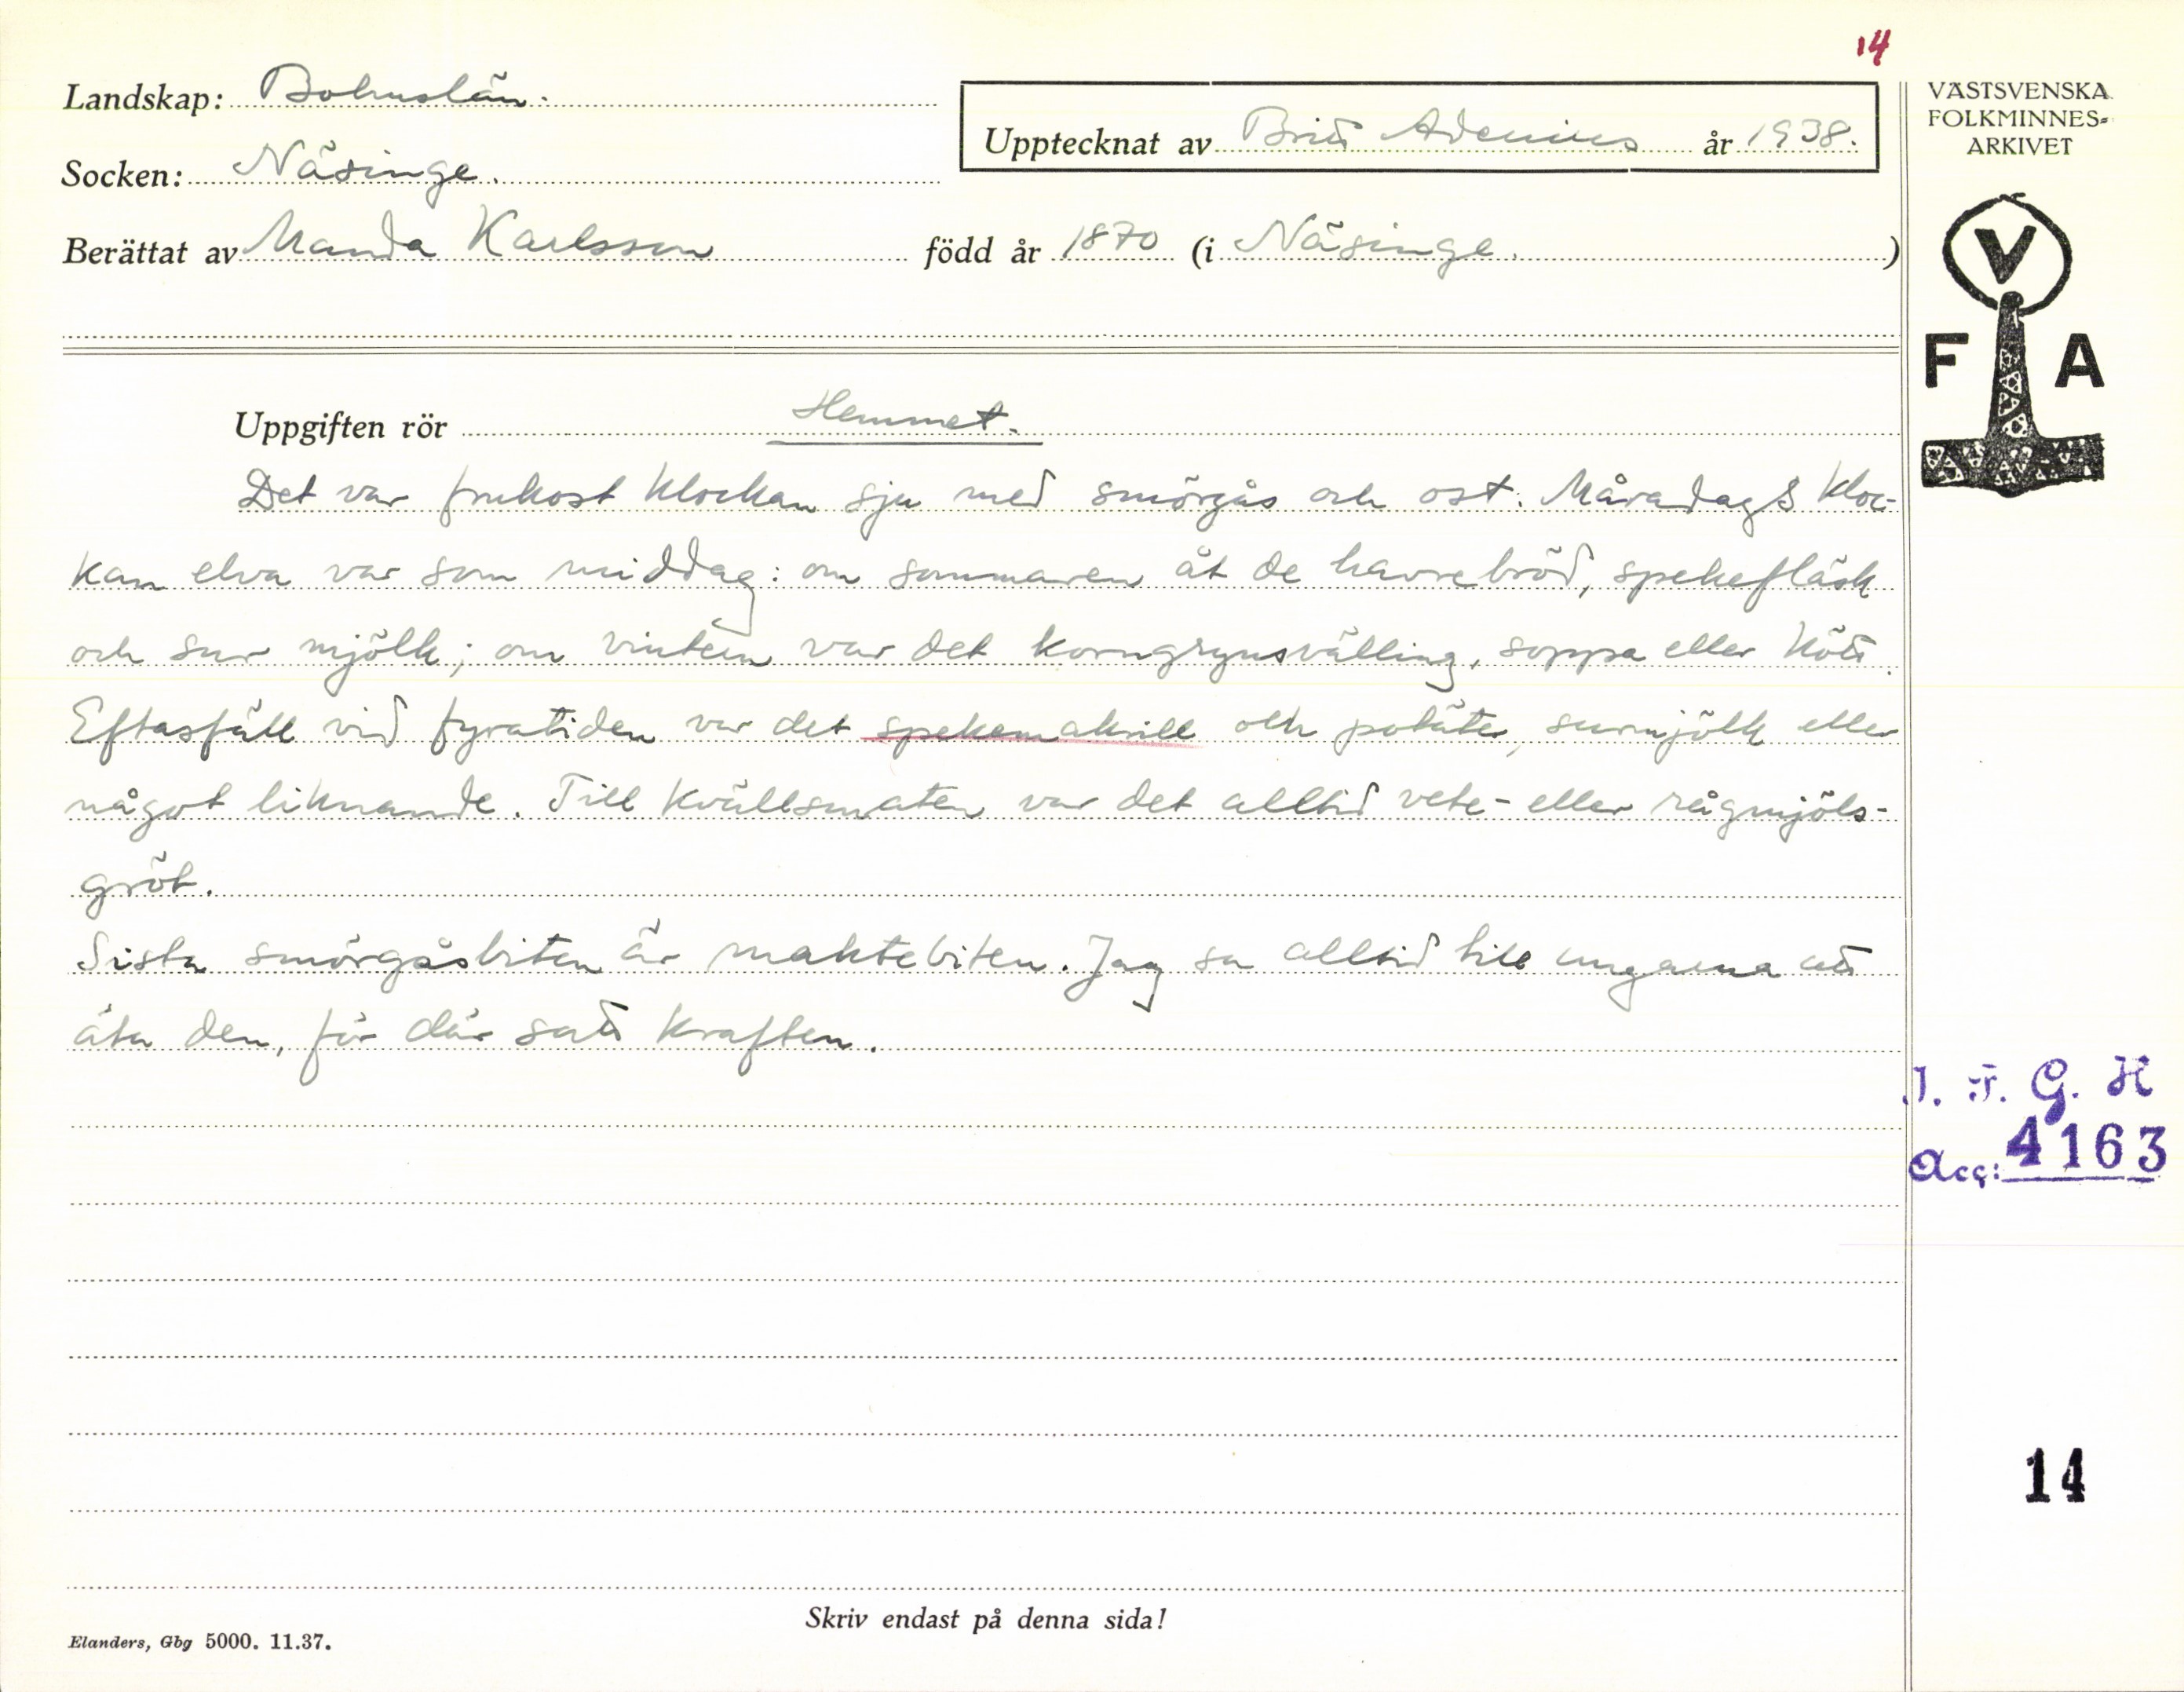 14
Landskap: Bohuslän.
Upptecknat av Britt Adenius år 1938.
Socken: Näsinge.
Berättat av Manda Karlsson född år 1870 (i Näsinge.)
VÄSTSVENSKA
FOLKMINNES=
ARKIVET
V
F A
Uppgiften rör Hemmet.
Det var frukost klockan sju med smörgås och ost. Måradags kloc-
kan elva var som middag: om sommaren åt de havrebröd, spekefläsk
och sur mjölk; om vintern var det korngrynsvälling, soppa eller kött.
Eftasfäll vid fyratiden var det spekemakrill och potäter, surmjölk eller
något liknande. Till kvällsmaten var det alltid vete- eller rågmjöls-
gröt.
Sista smörgåsbiten är maktebiten. Jag sa alltid till ungarna att
äta den, för där satt kraften.
J. F. G. H
Acc: 4163
14
Skriv endast på denna sida!
Elanders, Gbg 5000. 11.37.